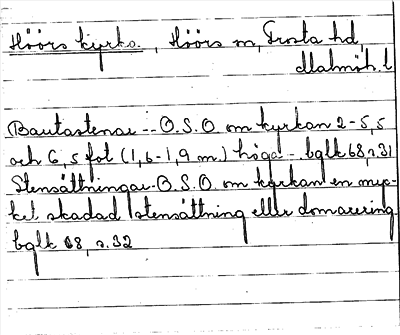 Höörs kyrka., Höörs sn, Frosta hd,
Malmöh. l
Bautastenar -- O.S.O. om kyrkan 2-5,5
och 6,5 fot (1,6-1,9 m.) höga -. bglk 68, s.31
Stensättningar- O.S.O. om kyrkan en myc-
ket skadad stensättning eller domarering
bglk 68, s.32